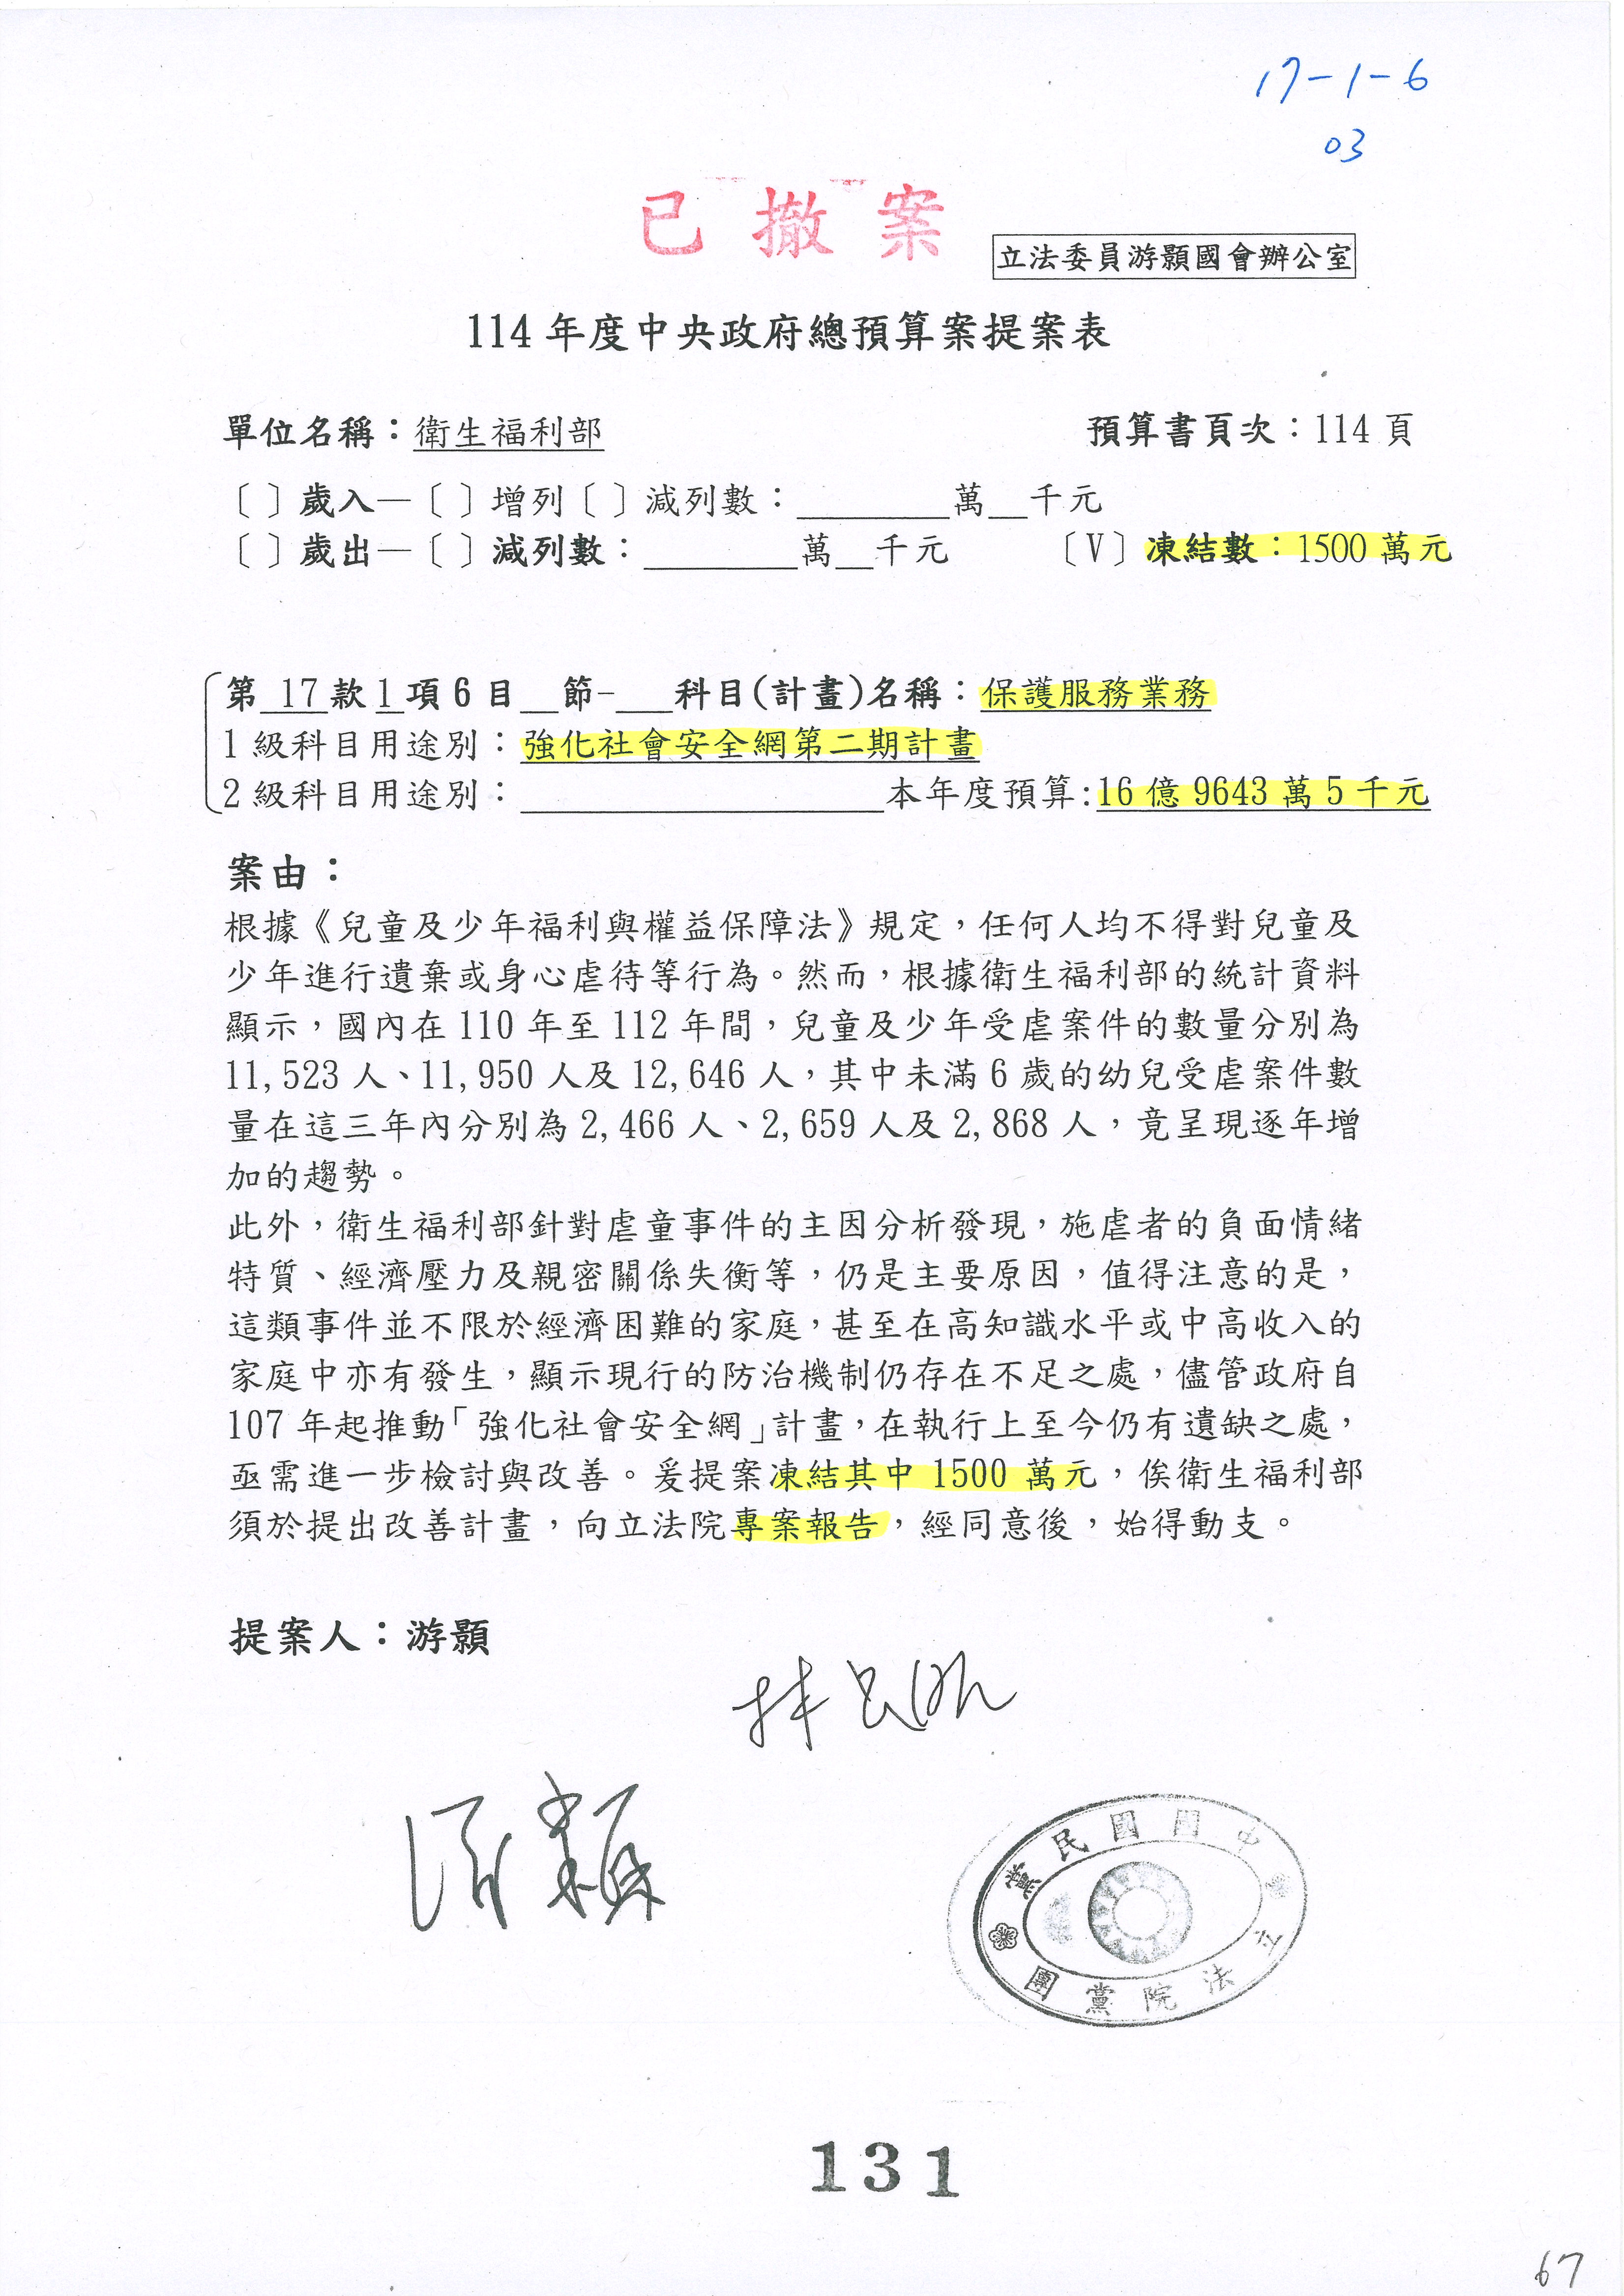 17-1-6
03
已撤案
立法委員游顥國會辦公室
114 年度中央政府總預算案提案表
單位名稱：衛生福利部 預算書頁次：114 頁
〔 〕歲入—〔 〕增列〔 〕減列數：________萬__千元
〔 〕歲出—〔 〕減列數：________萬__千元 〔V〕凍結數：1500 萬元
第 17 款 1 項 6 目__節-___科目(計畫)名稱：保護服務業務
1 級科目用途別：強化社會安全網第二期計畫
2 級科目用途別：___________________本年度預算:16 億 9643 萬 5 千元
案由：
根據《兒童及少年福利與權益保障法》規定，任何人均不得對兒童及
少年進行遺棄或身心虐待等行為。然而，根據衛生福利部的統計資料
顯示，國內在 110 年至 112 年間，兒童及少年受虐案件的數量分別為
11,523 人、11,950 人及 12,646 人，其中未滿 6 歲的幼兒受虐案件數
量在這三年內分別為 2,466 人、2,659 人及 2,868 人，竟呈現逐年增
加的趨勢。
此外，衛生福利部針對虐童事件的主因分析發現，施虐者的負面情緒
特質、經濟壓力及親密關係失衡等，仍是主要原因，值得注意的是，
這類事件並不限於經濟困難的家庭，甚至在高知識水平或中高收入的
家庭中亦有發生，顯示現行的防治機制仍存在不足之處，儘管政府自
107 年起推動「強化社會安全網」計畫，在執行上至今仍有遺缺之處，
亟需進一步檢討與改善。爰提案凍結其中 1500 萬元，俟衛生福利部
須於提出改善計畫，向立法院專案報告，經同意後，始得動支。
提案人：游顥
游顥
中國國民黨
立法院黨團
131
67